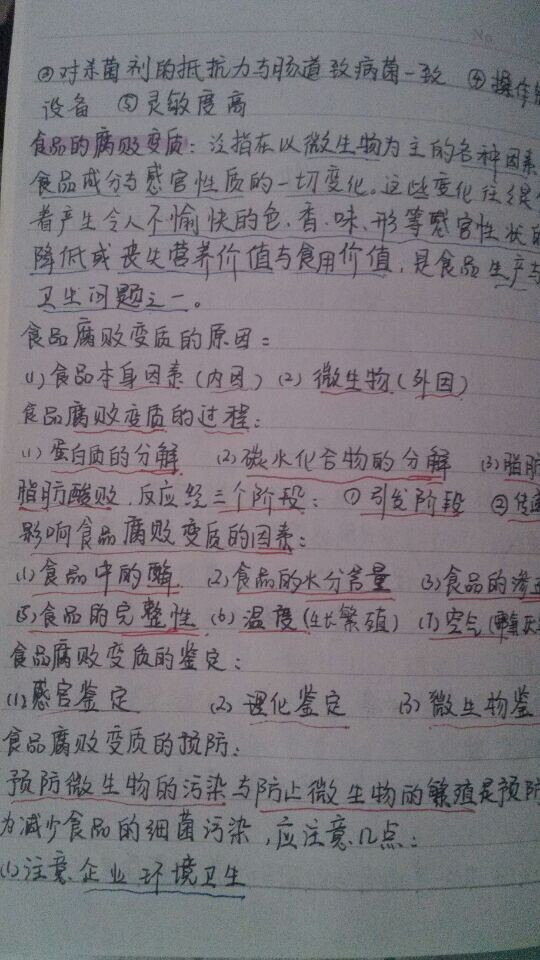 No.
③对杀菌剂的抵抗力与肠道致病菌一致 ④操作
设备 ⑤灵敏度高
食品的腐败变质：泛指在以微生物为主的各种因素
食品成分与感官性质的一切变化。这些变化往往
着产生令人不愉快的色、香、味、形等感官性状的
降低或丧失营养价值与食用价值，是食品生产与
卫生问题之一。
食品腐败变质的原因：
(1)食品本身因素(内因) (2)微生物(外因)
食品腐败变质的过程：
(1)蛋白质的分解 (2)碳水化合物的分解 (3)脂肪
脂肪酸败，反应经三个阶段：①引发阶段 ②传
影响食品腐败变质的因素：
(1)食品中的酶 (2)食品的水分含量 (3)食品的渗
(5)食品的完整性 (6)温度(生长繁殖) (7)空气(
食品腐败变质的鉴定：
(1)感官鉴定 (2)理化鉴定 (3)微生物鉴
食品腐败变质的预防：
预防微生物的污染与防止微生物的繁殖是预防
为减少食品的细菌污染，应注意几点：
(1)注意企业环境卫生